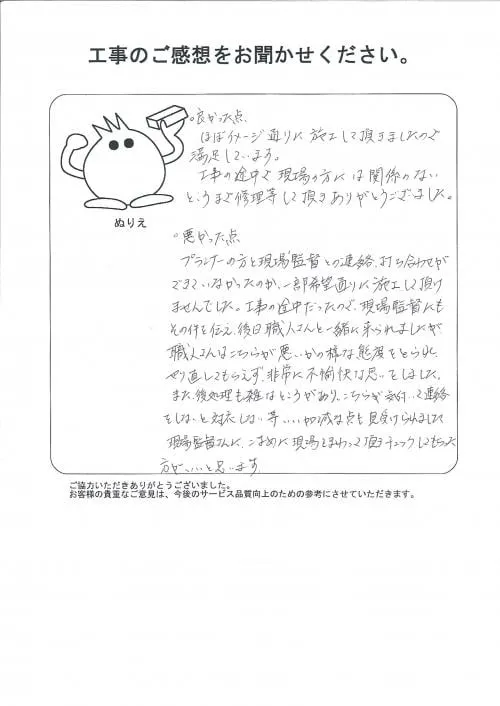 工事のご感想をお聞かせください。
○良かった点
ほぼイメージ通りに施工して頂きましたので
満足しています。
工事の途中で現場の方には関係のない
ところまで修理等して頂きありがとうございました。
ぬりえ
○悪かった点
プランナーの方と現場監督との連絡、打ち合わせが
できていなかったのか、一部希望通りに施工して頂け
ませんでした。工事の途中だったので、現場監督にも
その件を伝え、後日職人さんと一緒に来られましたが
職人さんはこちらが悪いかの様な態度をとられ
やり直してもらえず、非常に不愉快な思いをしました。
また、後処理も雑なところがあり、こちらが気付いて連絡
をしないと対応しない等いい加減な点も見受けられました
現場監督さんに、こまめに現場をまわって頂きチェックしてもらった
方がいいと思います
ご協力いただきありがとうございました。
お客様の貴重なご意見は、今後のサービス品質向上のための参考にさせていただきます。